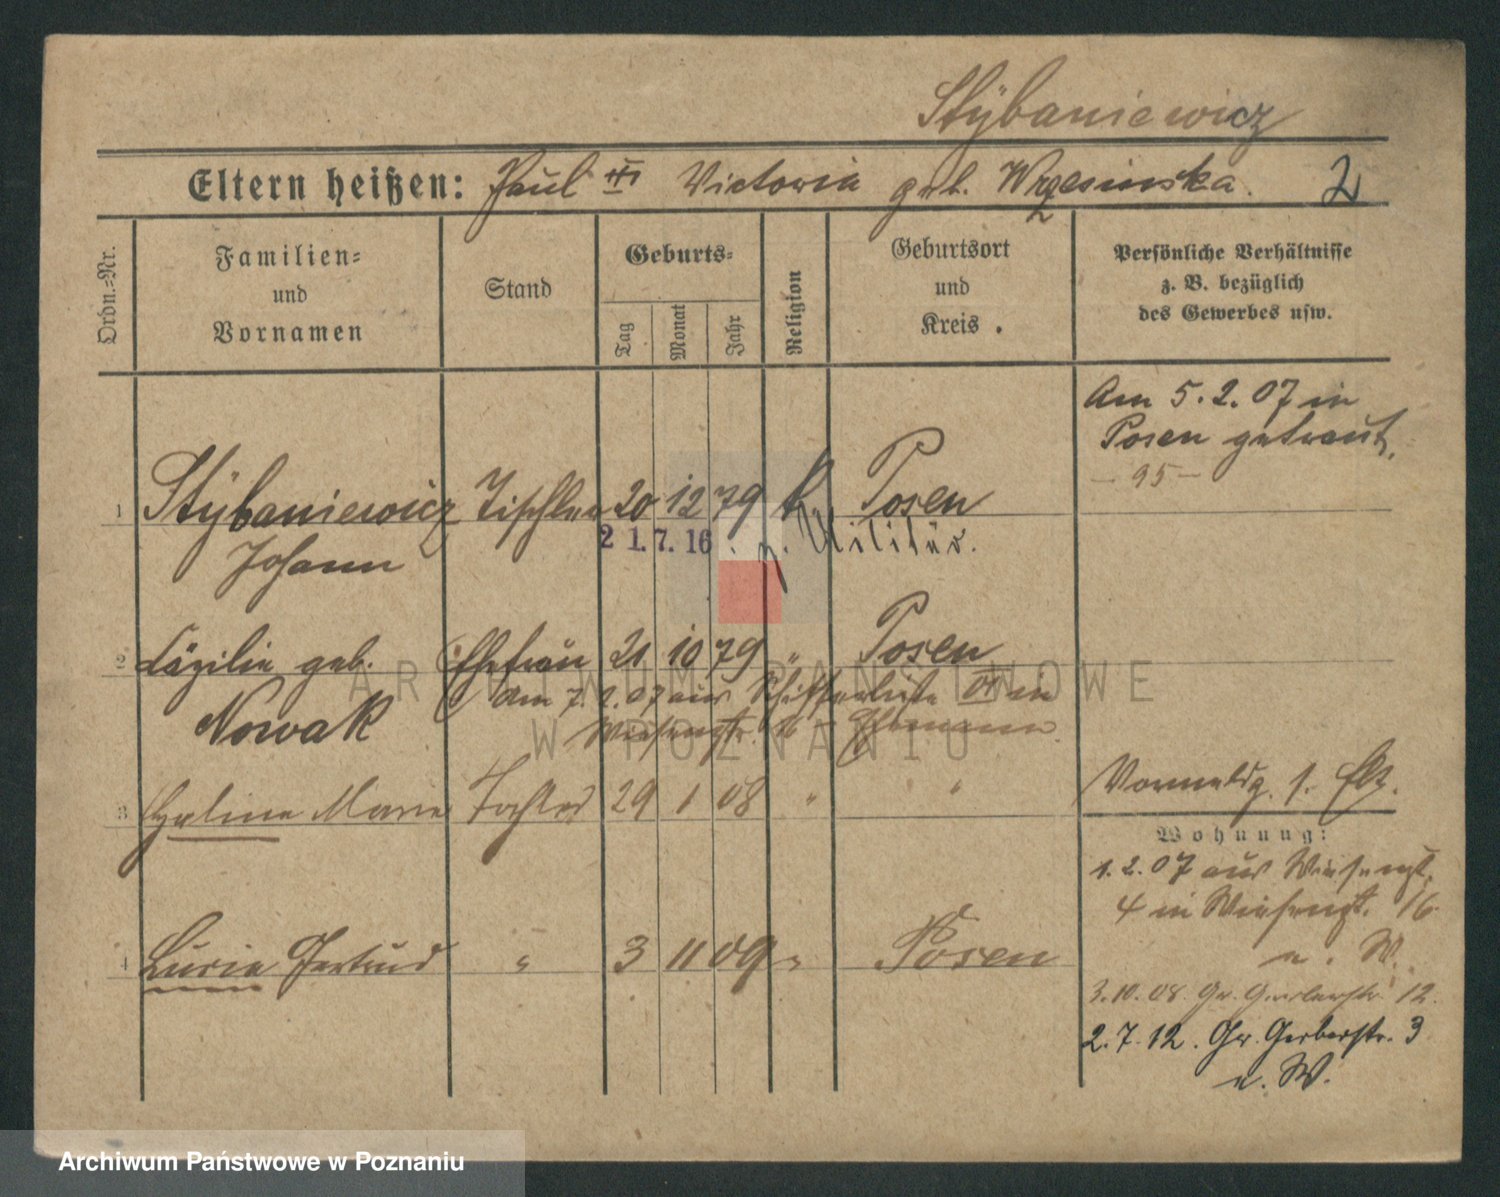 Stÿbaniewicz
Eltern heißen: Paul † Victoria geb. Wrzesinska. 2
Ordn.-Nr.
Familien-
und
Vornamen
Stand
Geburts-
Tag
Monat
Jahr
Religion
Geburtsort
und
Kreis .
Persönliche Verhältnisse
z. B. bezüglich
des Gewerbes usw.
Am 5.2.07 in
Posen getraut.
- 95 -
1 Stÿbaniewicz Tischler 20 12 79 k. Posen
21.7.16. z. Militär.
Johann
2 Cäzilie geb. Ehefrau 21 10 79 " Posen
Am 7. 2. 07 aus in
Nowak
Wiesenstr. 16 - Ehemann.
3 Halina Marie Tochter 29 1 08 " "
1.
Wohnung:
1.2.07 aus Wiesenstr.
4 in Wiesenstr. 16.
n. W.
4 Lucia Gertrud " 3 11 09 " Posen
3.10.08. Gr. Gerberstr. 12.
2.7.12. Gr. Gerberstr. 3
n. W.
ARCHIWUM PAŃSTWOWE
W POZNANIU
Archiwum Państwowe w Poznaniu